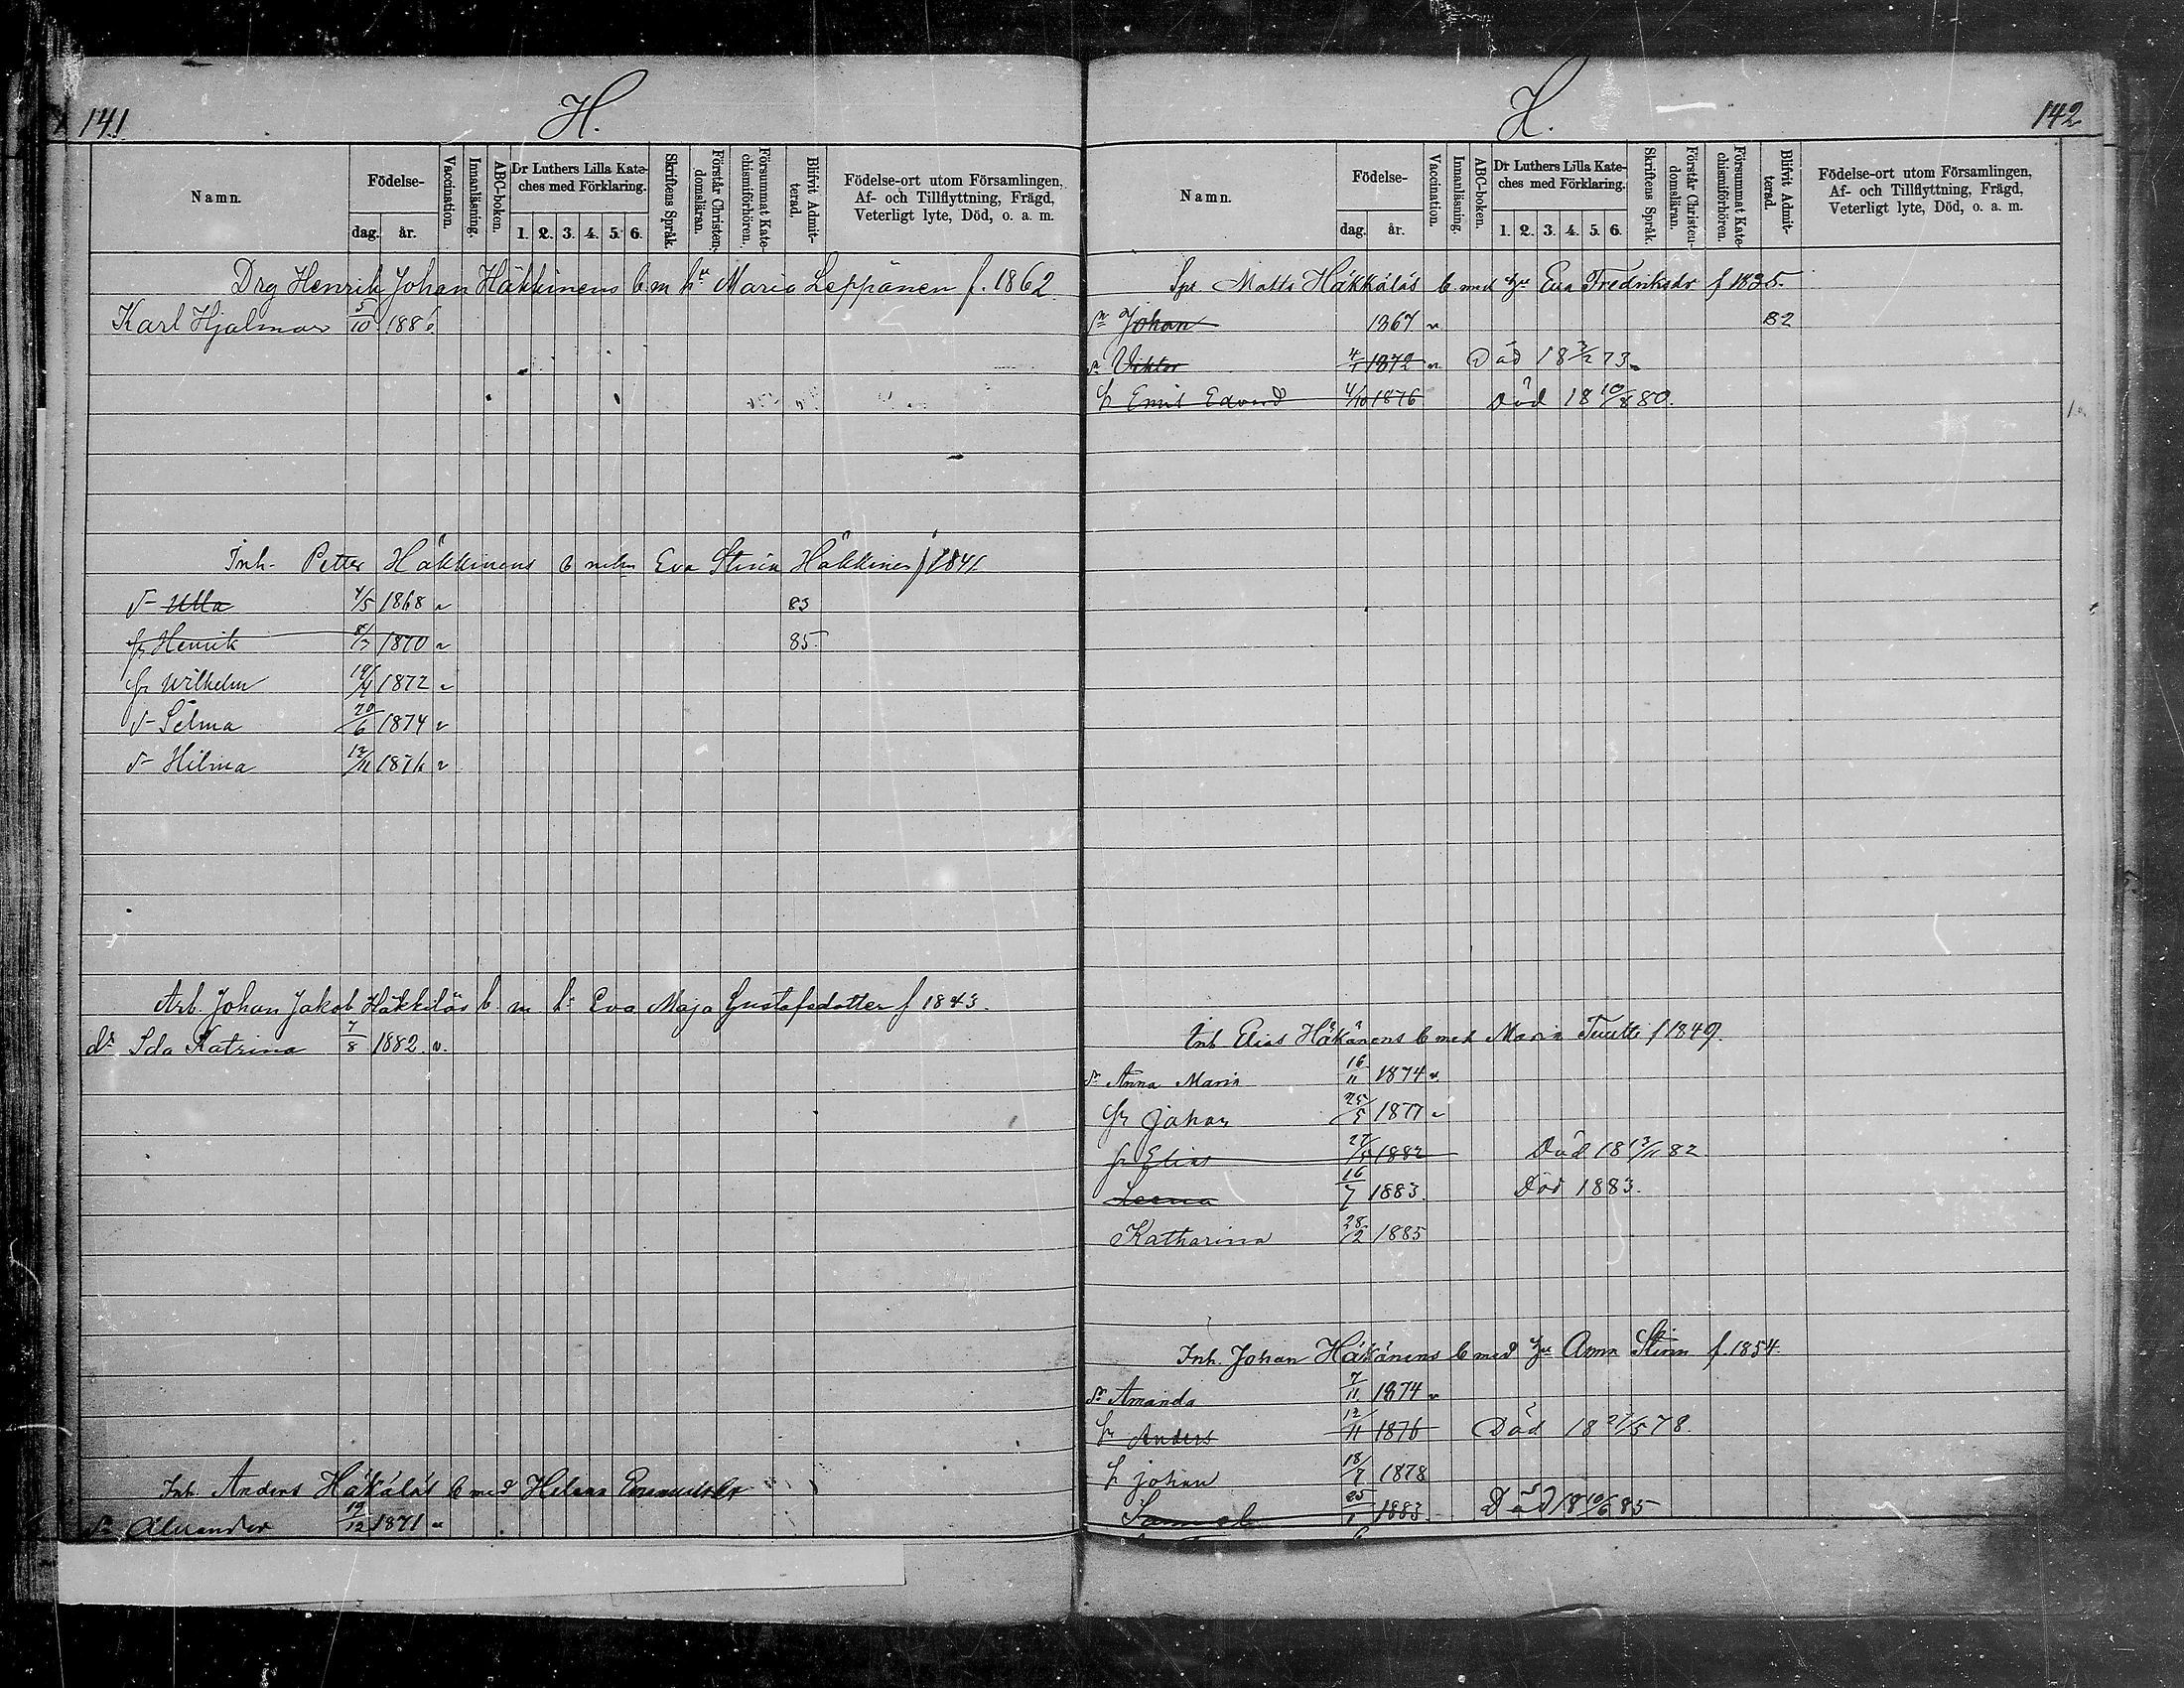 141
H.
Namn.
Födelse-
dag. år.
Vaccination.
Innanläsning.
ABC-boken.
Dr Luthers Lilla Kate-
ches med Förklaring.
1. 2. 3. 4. 5. 6.
Skriftens Språk.
Förstår Christen-
domsläran.
Försummat Kate-
chismiförhören.
Blifvit Admit-
terad.
Födelse-ort utom Församlingen,
Af- och Tillflyttning, Frägd,
Veterligt lyte, Död, o. a. m.
Drg Henrik Johan Häkkinens b. m hu Maria Leppänen f. 1862
Karl Hjalmar 5/10 1886.
Inh. Petter Häkkinens b m hu Eva Stina Häkkinen f 1841
Ulla 4/5 1868 v 83
Henrik 1870 v 85.
Wilhelm 1872 v
Selma 20/6 1874 v
Hilma 12/11 1876 v
Arb. Johan Jakob Häkkiläs b m hu Eva Maja Gustafsdotter f 1843.
dr Ida Katrina 7/8 1882. v.
Inh. Anders Häkäläs b med Helena
Alexander 19/12 1871 v
142
H.
Namn.
Födelse-
dag. år.
Vaccination.
Innanläsning.
ABC-boken.
Dr Luthers Lilla Kate-
ches med Förklaring.
1. 2. 3. 4. 5. 6.
Skriftens Språk.
Förstår Christen-
domsläran.
Försummat Kate-
chismiförhören.
Blifvit Admit-
terad.
Födelse-ort utom Församlingen,
Af- och Tillflyttning, Frägd,
Veterligt lyte, Död, o. a. m.
Matts Häkkäläs b med hu Eva Fredriksdr f 1835.
Johan 1867 v 82
Viktor 4/1 1872 v Död 18 3/2 73.
Emil Edvard 4/10 1876 Död 18 10/8 80.
Inh Elias Häkänens b med Maria f 1849.
Anna Maria 16/11 1874 v.
Johan 25/5 1877 v
Elias 1882 Död 18 13/11 82
Leena 16/7 1883. Död 1883.
Katharina 28/2 1885
Inh. Johan Häkänens b med hu Anna Stina f. 1854.
Amanda 7/11 1874 v
Anders 12/11 1876 Död 18 27/5 78.
Johan 1878
Samuel 25/1 1883 Död 18 10/6 85